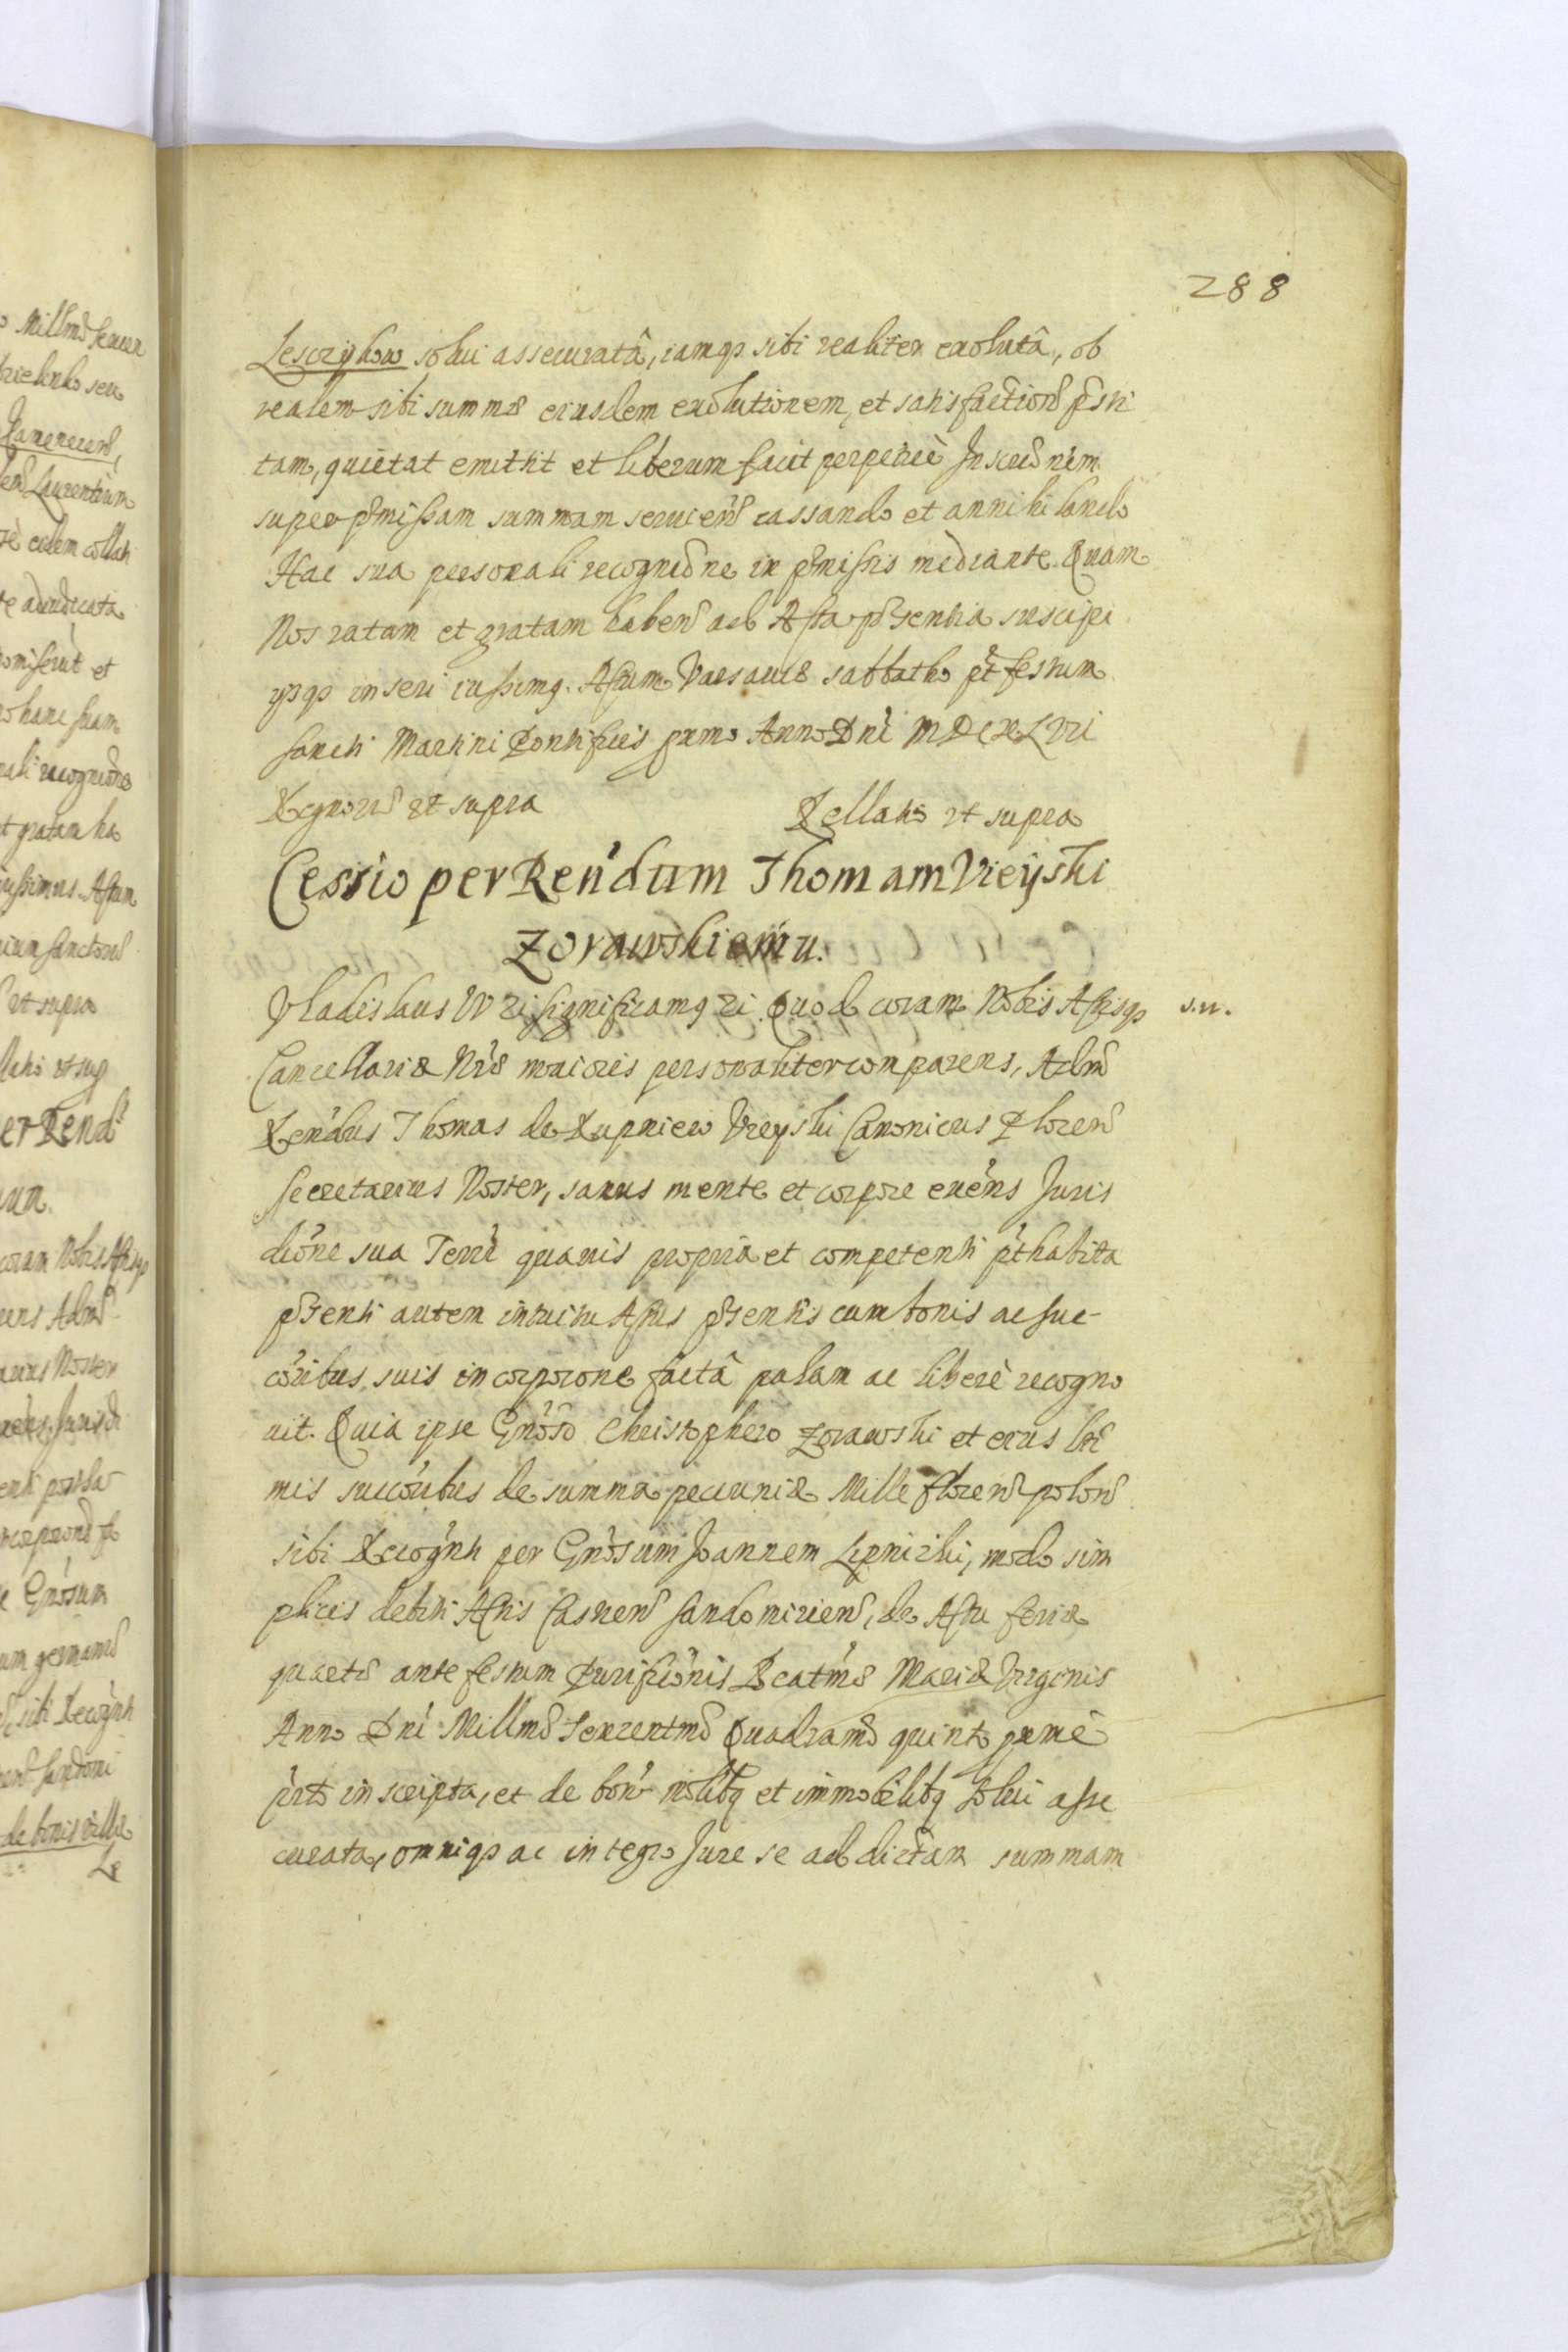 288
Leszczykow solui assecuratâ, iamqȝ sibi realiter exolutâ, ob
realem sibi summæ eiusdem exolutionem, et satisfaction͠ p͠sti
tam, quietat emittit et liberum facit perpetuè Inscrip͠nem
super p͠missam summam seruien͠ cassando et annihilando
Hac sua personali recognic͠ne in p͠missis mediante. Quam
Nos ratam et gratam haben͠ ad Acta p͠sentia suscipi
ijsqȝ inseri iussimꝯ. Actum Varsauiæ sabbatho p͠t festum
sancti Martini Pontificis p͠xmo Anno Dn͠i MDCXLVI
Regnor͠ ut supra Rellatio ut supra
Cessio per Ren͠dum Thomam Vieÿski
Zorawskiemu.
Vladislaus IV ꝛi significamꝯ ꝛi Quod coram Nobis Actisqȝ s.n.
Cancellariæ Nr͠æ maioris personaliter comparens, Adm͠
Ren͠dus Thomas de Rupniew Vieyski Canonicus Plocen͠
Secretarius Noster, sanus mente et corpore exe͠ns Juris
dic͠one sua Terr͠i quauis propria et competenti p͠thabita
p͠senti autem intuitu Actus p͠sentis cum bonis ac suc-
co͠ribus suis incorporone factâ palam ac liberè recogno
uit. Quia ipse Gn͠oso Christophero Zorawski et eius lt͠i
mis succo͠ribus de summa pecuniæ Mille floren͠ polon͠
sibi Recog͠nti per Gn͠osum Joannem Lipnicki, modo sim
plicis debiti Actis Castren͠ Sandomirien͠, de Actu feriæ
quartæ ante festum Purific͠onis Beat͠mæ Mariæ Virginis
Anno Dn͠i Millm͠o Sexcentm͠o Quadram͠o quinto p͠ximè
p͠rto inscripta, et de bon͠ mo͠libꝯ et immobilibꝯ solui asse
curata, omniqȝ ac integro Jure se ad dictam summam